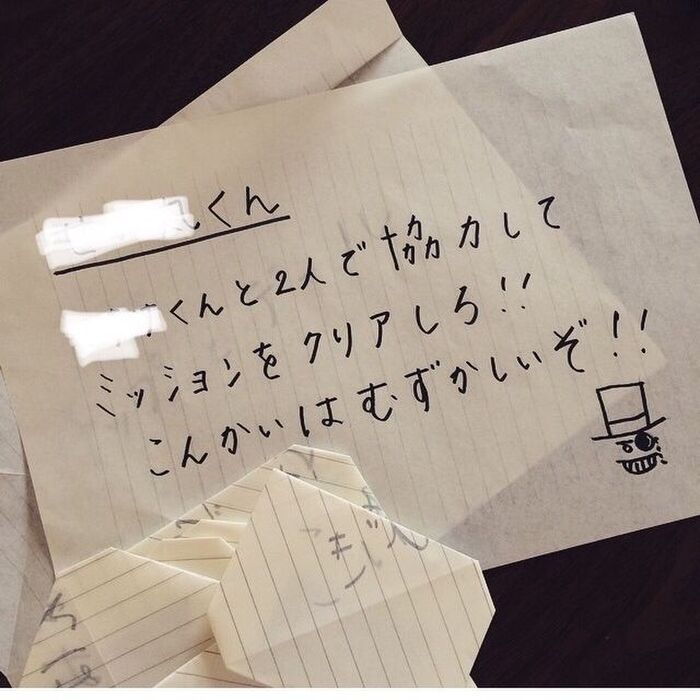 くん
くんと2人で協力して
ミッションをクリアしろ!!
こんかいはむずかしいぞ!!